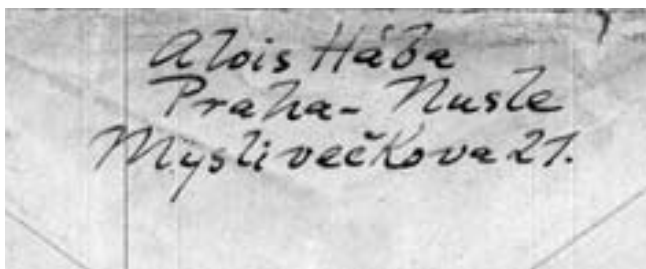 Alois Hába
Praha - Nusle
Myslivečkova 21.